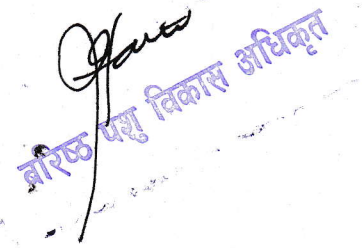 बरिष्ठ पशु विकास अधिकृत